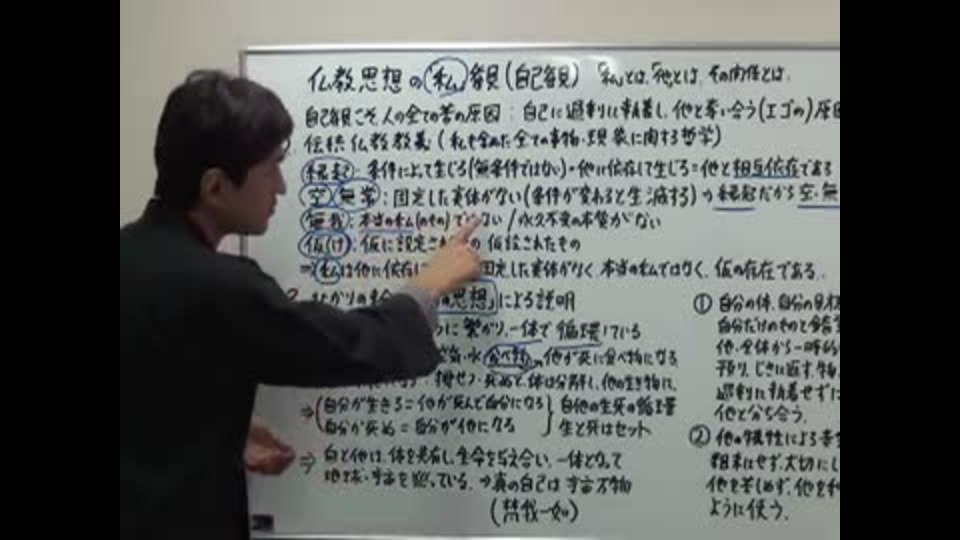 仏教思想の「私」観(自己観) 「私」とは、「他」とは、その関係とは。
自己観こそ、人の全ての苦の原因:自己に過剰に執着し、他と奪い合う(エゴの)原因
伝統仏教教義(私も含めた全ての事物・現象に関する哲学)
縁起:条件によって生じる(無条件ではない)・他に依存して生じる=他と相互依存である
空・無常:固定した実体がない(条件が変わると生滅する)⇒縁起だから空・無
無我:本当の私(のもの)ではない/永久不変の本質がない
仮(け):仮に設定され の 仮設されたもの
⇒私は他に依存し 固定した実体がなく、本当の私ではなく、仮の存在である。
2. ひかりの輪 の思想」による説明
に繋がり、一体で循環している
空気・水 食べ物→他が死に食べ物になる
・死ぬと、体は分解し、他の生き物に、
⇒(自分が生きる=他が死んで自分になる
自分が死ぬ=自分が他になる
自他の生死の循環
生と死はセット
⇒自と他は、体を共有し、生命を与え合い、一体となって
地球・宇宙を巡っている。⇒真の自己は宇宙万物
(梵我一如)
① 自分の体、自分の
自分だけのものと錯覚
他・全体から一時的
預り、じきに返す、物
過剰に執着せずに
他と分ち合う。
② 他の犠牲による幸
粗末にせず、大切にし
他を苦しめず、他を利
ように使う。